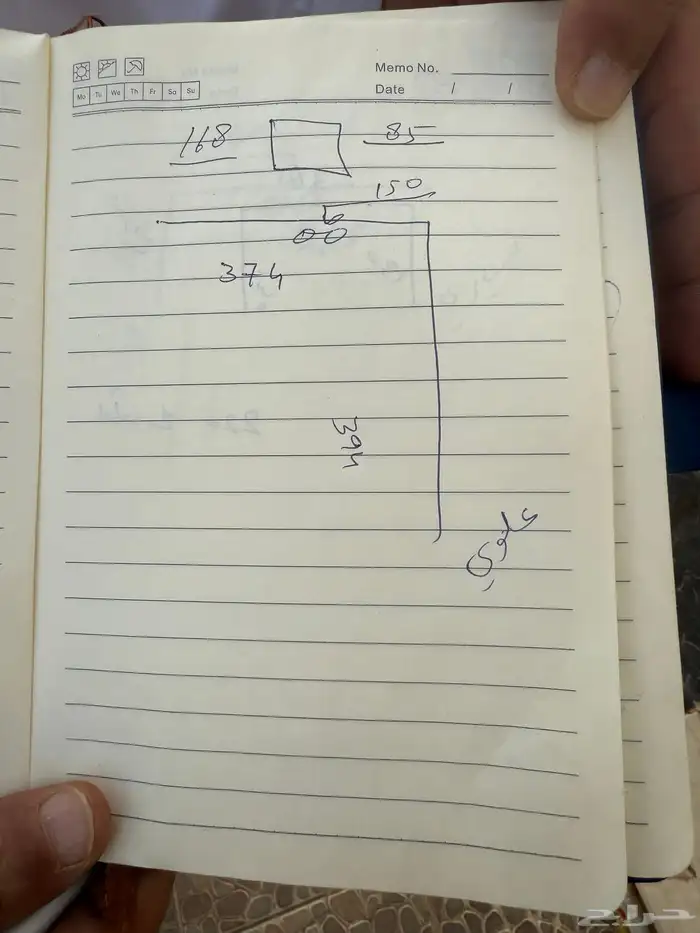 Memo No.
Mo Tu We Th Fr Sa Su
Date / /
168 85
150
374
394
حراج